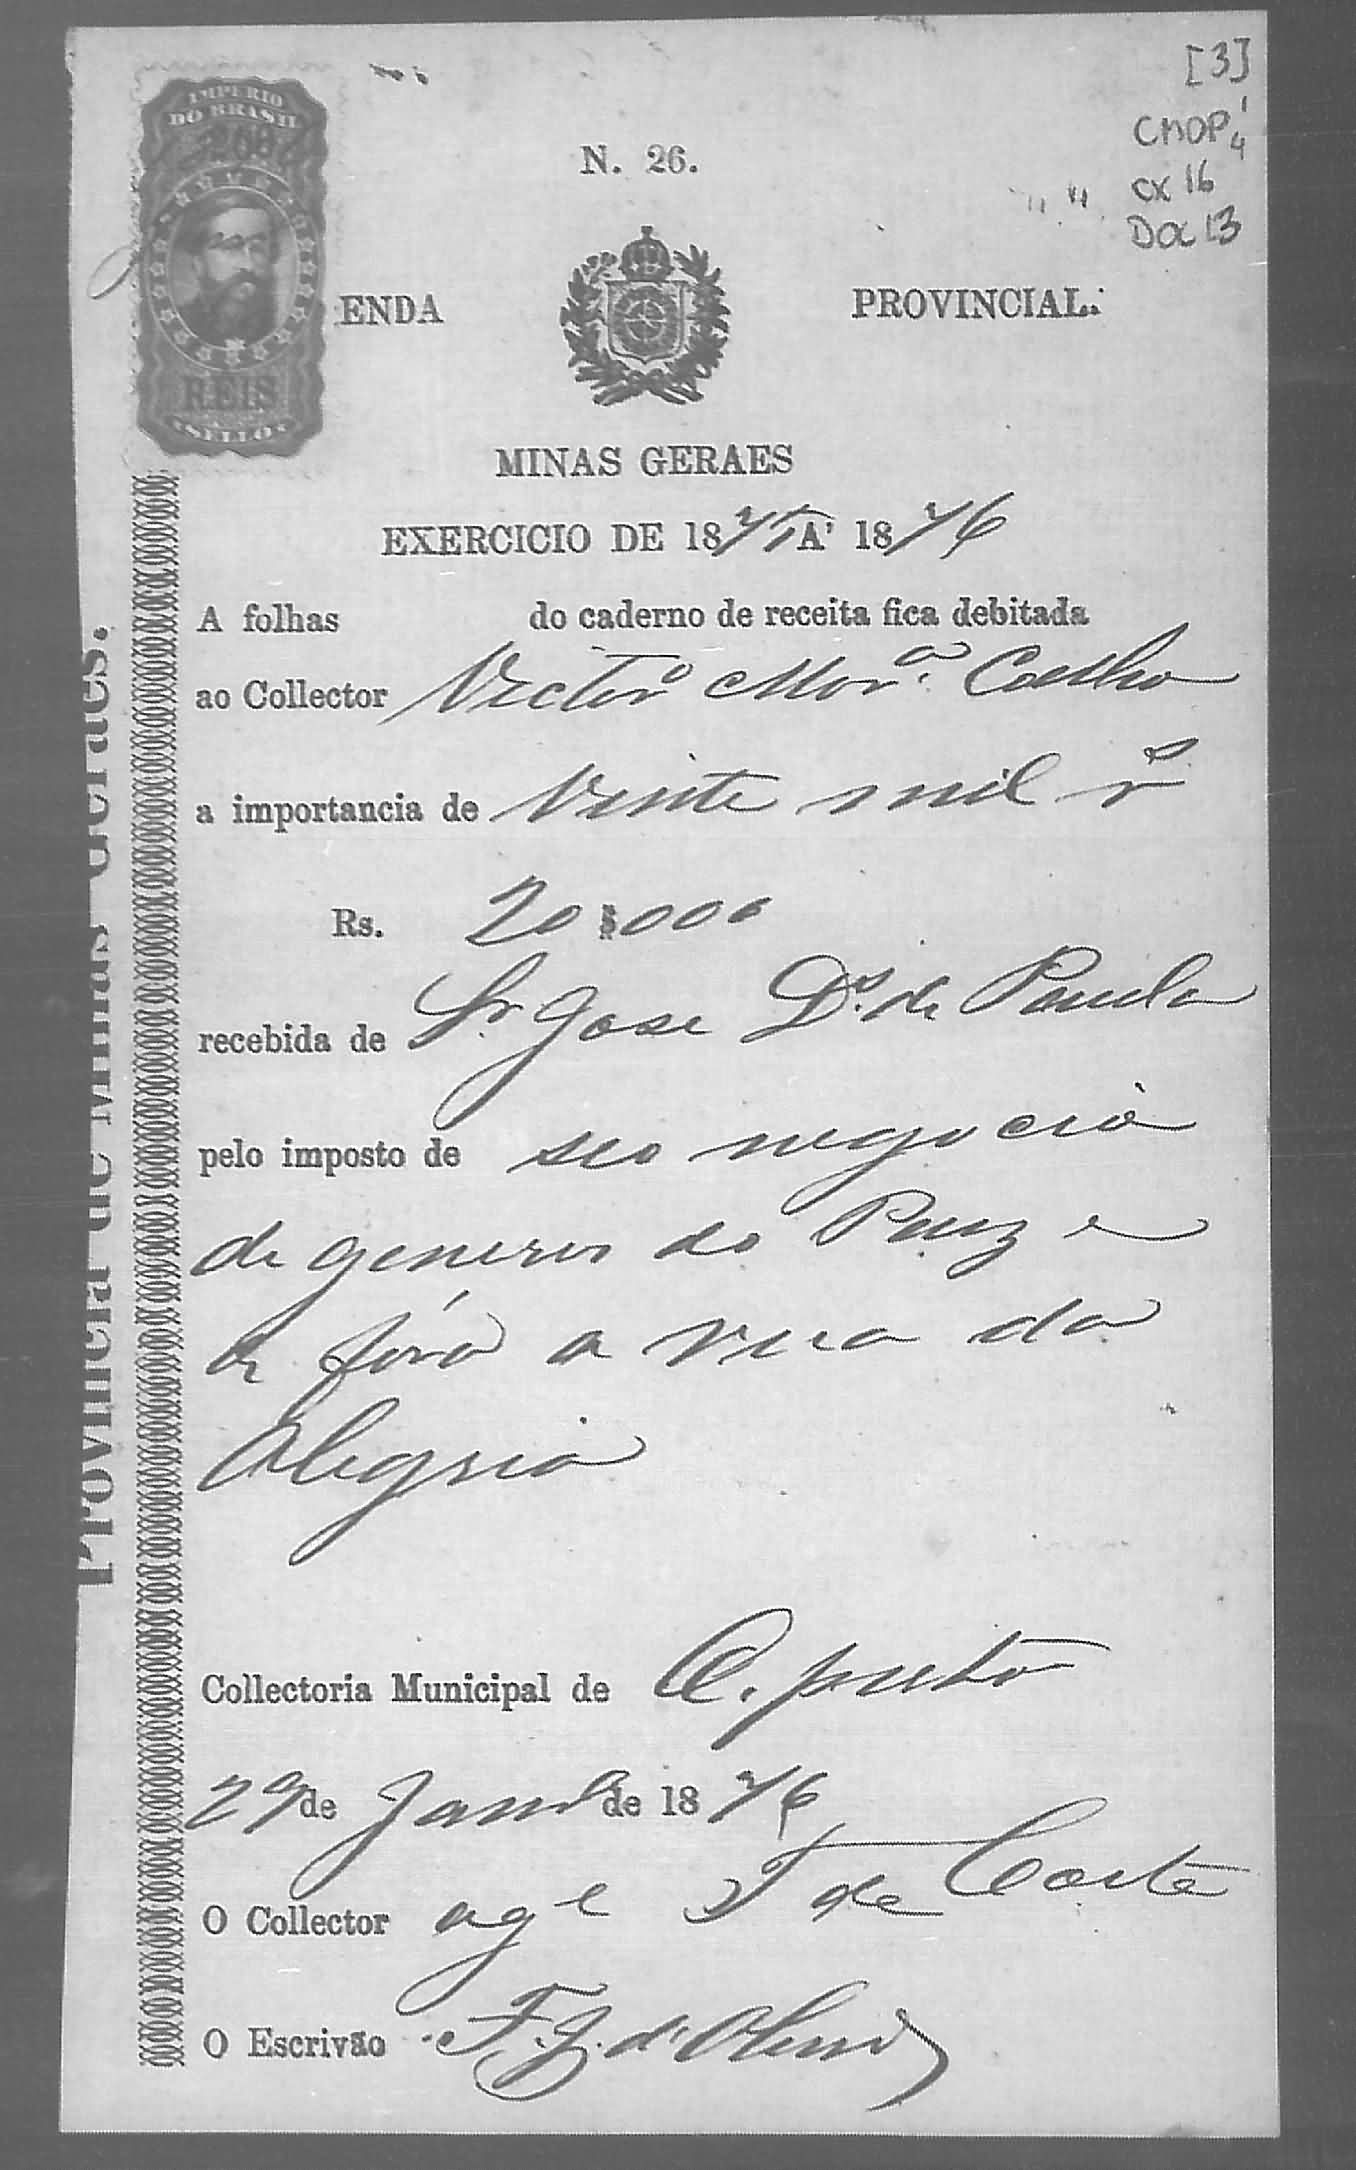 [3]
CMOP 1
4
cx 16
Doc 13
IMPERIO
DO BRASIL
200
REIS
SELLO
N. 26.
ENDA PROVINCIAL.
MINAS GERAES
EXERCICIO DE 1875 A' 1876
A folhas do caderno de receita fica debitada
ao Collector Victorº Morª. Coelho
a importancia de Vinte mil rˢ
Rs. 20$000
recebida de Sr. Jose Dˢ. de Paula
pelo imposto de seo negocio
de generos do Paiz e
de fóra a rua da
Alegria
Collectoria Municipal de O. preto
29 de Janrº de 1876
O Collector agᵉ F de Costa
O Escrivão F. J. d'
Provincia de Minas Geraes.